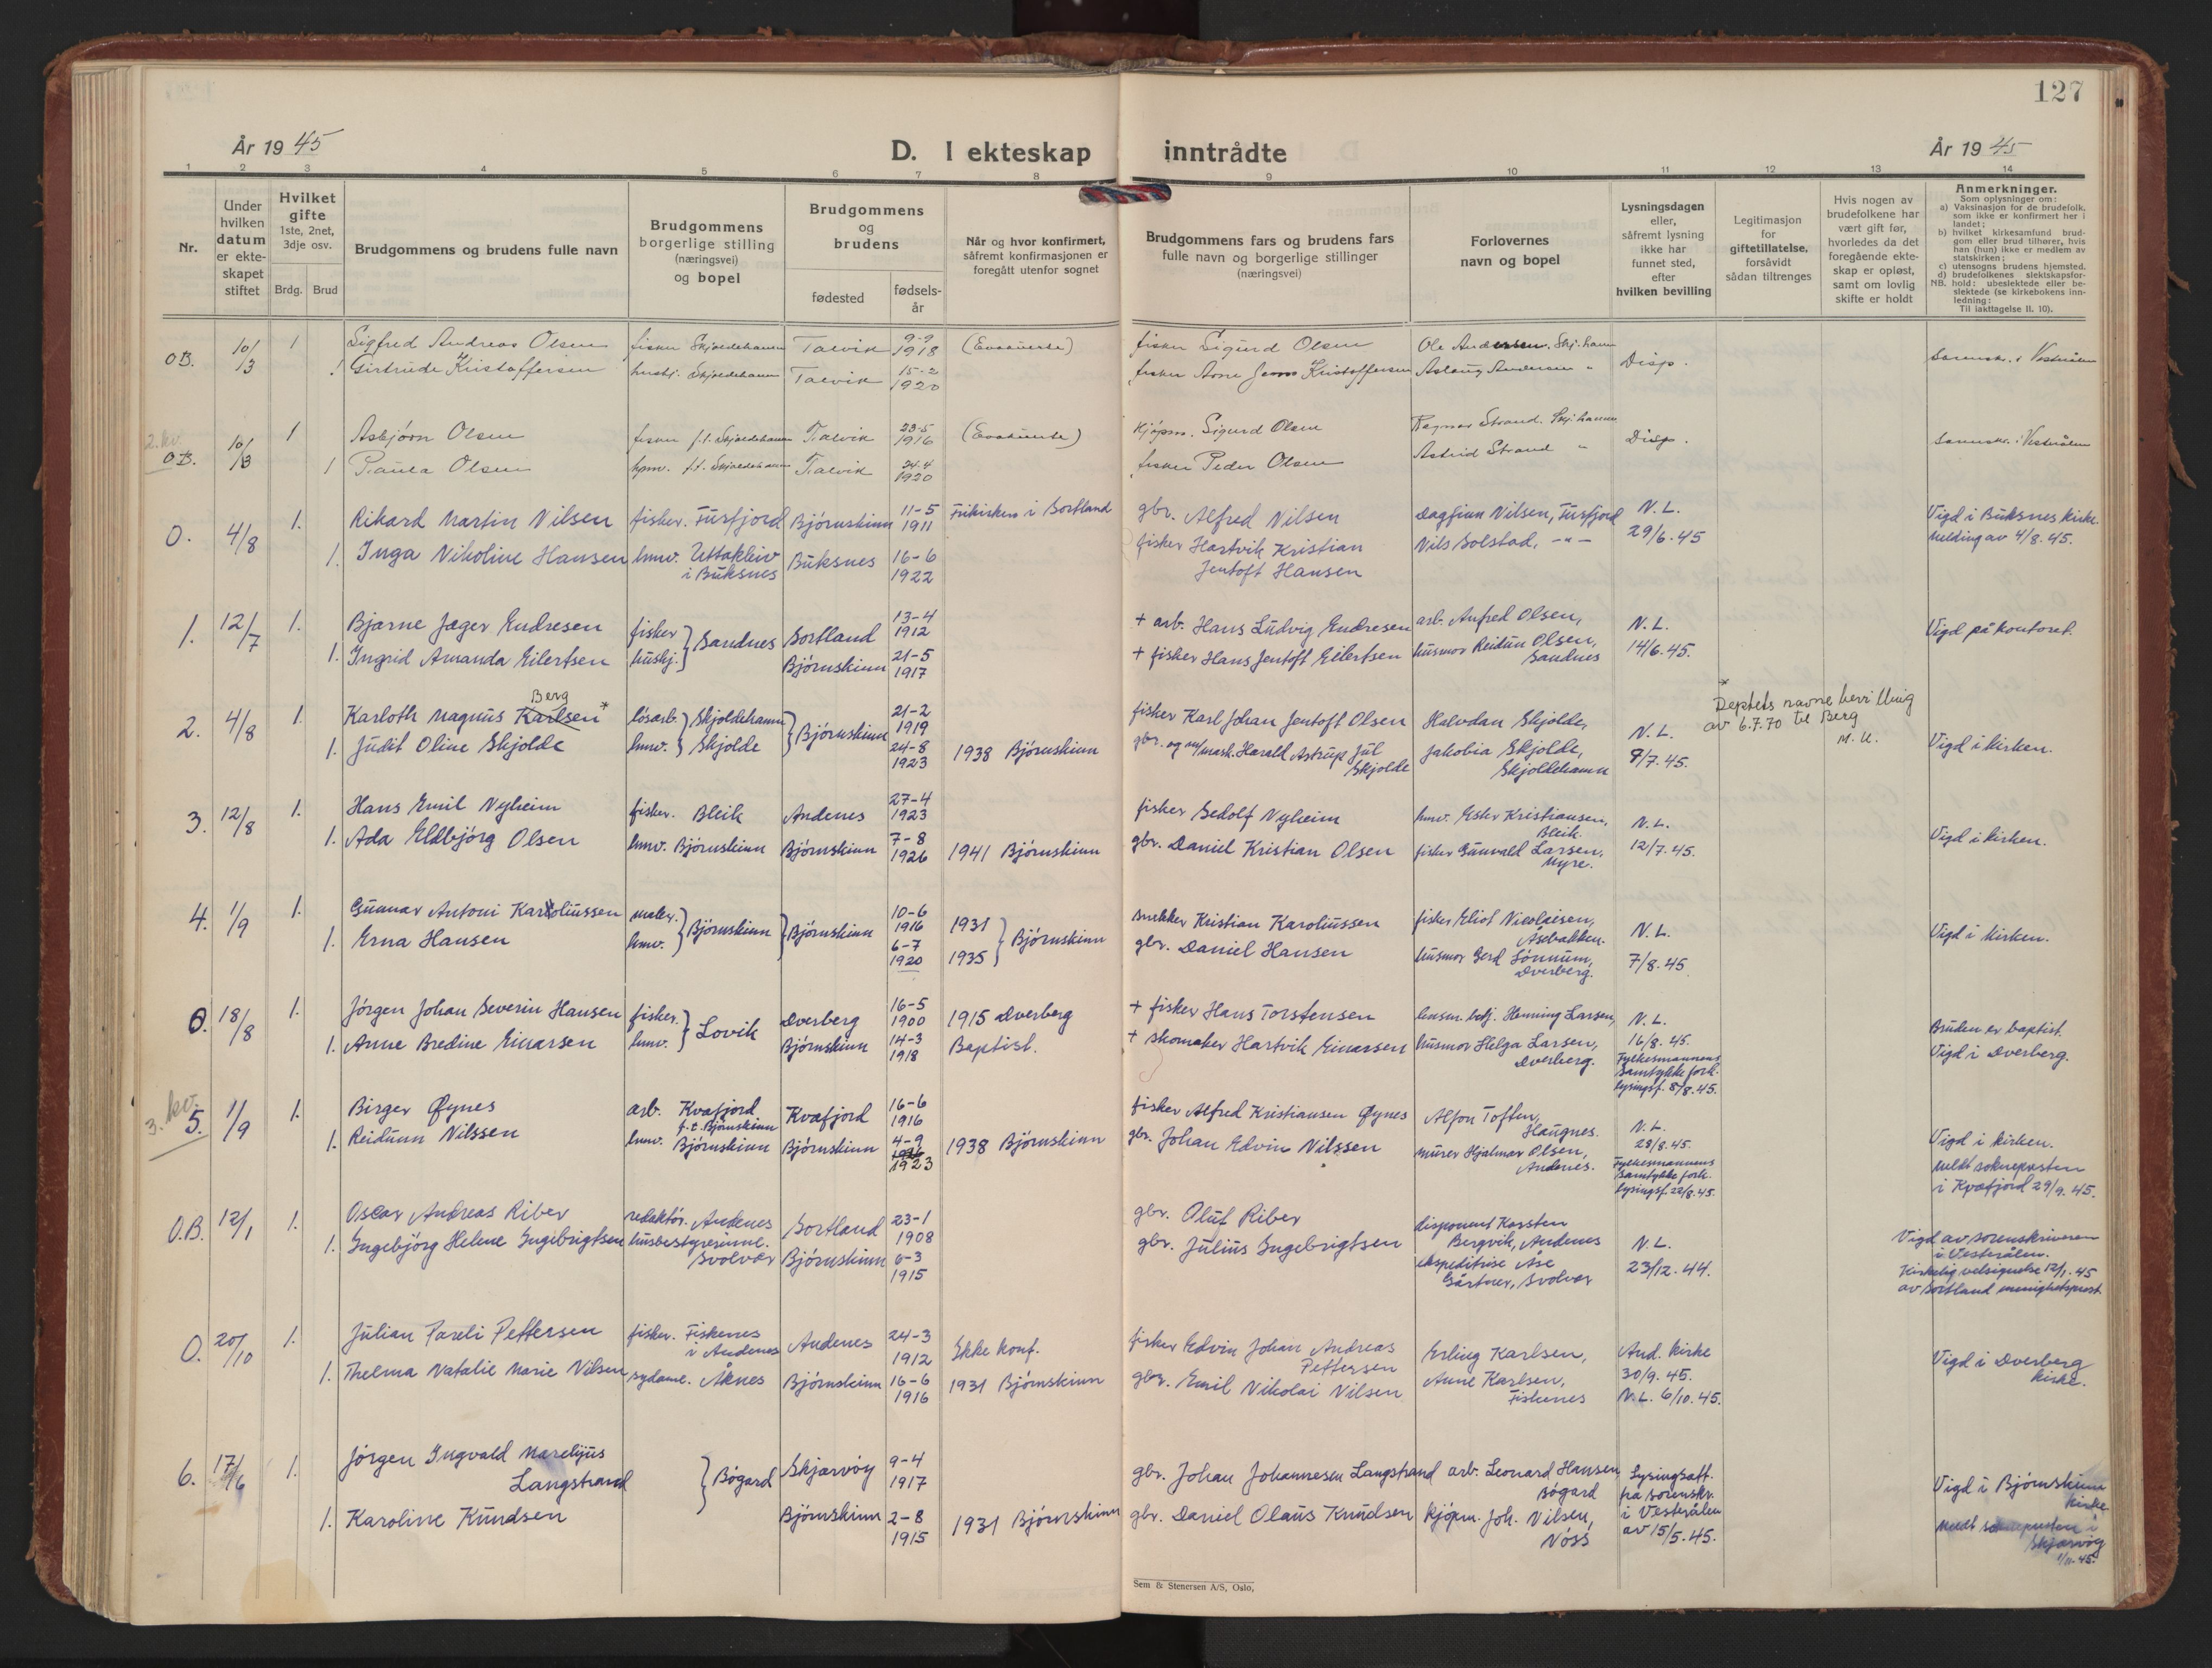 127
År 19 45
D. I ekteskap inntrådte
År 19 45
1 2 3 4 5 6 7 8 9 10 11 12 13 14
Nr.
Under hvilken datum er ekteskapet stiftet
Hvilket gifte 1ste, 2net, 3dje osv.
Brdg. Brud
Brudgommens og brudens fulle navn
Brudgommens borgerlige stilling (næringsvei) og bopel
Brudgommens og brudens
fødested
fødselsår
Når og hvor konfirmert, såfremt konfirmasjonen er foregått utenfor sognet
Brudgommens fars og brudens fars fulle navn og borgerlige stillinger (næringsvei)
Forlovernes navn og bopel
Lysningsdagen eller, såfremt lysning ikke har funnet sted, efter hvilken bevilling
Legitimasjon for giftetillatelse, forsåvidt sådan tiltrenges
Hvis nogen av brudefolkene har vært gift før, hvorledes da det foregående ekteskap er opløst, samt om lovlig skifte er holdt
Anmerkninger.
Som oplysninger om:
a) Vaksinasjon for de brudefolk. som ikke er konfirmert her i landet;
b) hvilket kirkesamfund brudgom eller brud tilhører, hvis han (hun) ikke er medlem av statskirken;
c) utensogns brudens hjemsted.
d) brudefolkenes slektskapsforhold: ubeslektede eller beslektede (se kirkebokens innledning:
NB.
Til iakttagelse II. 10).
OB. 10/3 1 Sigfred Andreas Olsen fisker Skjoldehamn Talvik 9-9 1918 (Evakuerte) fisker Sigurd Olsen Ole Andersen. Skj.hamn Disp.
1 Girtrude Kristoffersen husbj. Skjoldehamn Talvik 15-2 1920 fisker Arne Jens Kristoffersen Aslaug Andersen " Sorenskr. i Vesterålen
2. kv.
OB. 10/3 1 Asbjörn Olsen fisker f.t. Skjoldehamn Talvik 23-5 1916 (Evakuerte) Kjöpm. Sigurd Olsen Ragnar Strand. Skj.hamn Disp.
1 Paula Olsen hmv. f.t. Skjoldehamn Talvik 24-4 1920 fisker Peder Olsen Astrid Strand " Sorenskr. i Vesterålen
O. 4/8 1. Rikard Martin Nilsen fisker. Fusfjord Björnskinn 11-5 1911 Frikirken i Sortland gbr. Alfred Nilsen Dagfinn Nilsen, Fusfjord N.L. Vigd i Buksnes kirke.
1. Inga Nikoline Hansen hmv. Uttakleiv i Buksnes Buksnes 16-6 1922 fisker Hartvik Kristian Jentoft Hansen Nils Solstad, -"- 29/6.45 Melding av 4/8.45.
1. 12/7 1. Bjarne Jæger Endresen fisker } Sandnes Sortland 13-4 1912 + arb. Hans Ludvig Endresen arb. Anfred Olsen, N.L. Vigd på kontoret.
1. Ingrid Amanda Eilertsen husbj. Björnskinn 21-5 1917 + fisker Hans Jentoft Eilertsen husmor Reidun Olsen, Sandnes 14/6.45.
Berg
2. 4/8 1. Karloth Magnus Karlsen* lösarb. } Skjoldehamn } Björnskinn 21-2 1919 fisker Karl Johan Jentoft Olsen Halvdan Skjolde, N.L.
* Deptets navnebevilling av 6.7.70 til Berg M.U.
1. Judit Oline Skjolde hmv. Skjolde 24-8 1923 1938 Björnskinn gbr. og m/mask. Harald Astrup Jul Skjolde Jakobia Skjolde, Skjoldehamn 9/7.45. Vigd i kirken.
3. 12/8 1. Hans Emil Nyheim fisker. Bleik Andenes 27-4 1923 fisker Sedolf Nyheim hmv. Ester Kristiansen, Bleik. N.L. Vigd i kirken.
1. Ada Eldbjörg Olsen hmv. Björnskinn Björnskinn 7-8 1926 1941 Björnskinn gbr. Daniel Kristian Olsen fisker Gunvald Larsen, Myre. 12/7.45.
4. 1/9 1. Gunnar Antoni Karoliussen maler. } Björnskinn } Björnskinn 10-6 1916 1931 } Björnskinn snekker Kristian Karoliussen fisker Eliot Nicolaisen, Åsebakken. N.L. Vigd i kirken.
1. Erna Hansen hmv. 6-7 1920 1935 gbr. Daniel Hansen husmor Gerd Lönnum, Dverberg. 7/8.45.
O. 18/8 1. Jörgen Johan Severin Hansen fisker. } Lovik Dverberg 16-5 1900 1915 Dverberg + fisker Hans Torstensen lensm.betj. Henning Larsen, N.L. Bruden er baptist.
1. Anne Bredine Einarsen hmv. Björnskinn 14-3 1918 Baptist. + skomaker Hartvik Einarsen husmor Helga Larsen, Dverberg. 16/8.45. Fylkesmannens samtykke fork. lysingsf. 8/8.45. Vigd i Dverberg.
3. kv.
5. 1/9 1. Birger Øynes arb. Kvæfjord f.t. Björnskinn Kvæfjord 16-6 1916 fisker Alfred Kristiansen Øynes Alfon Toften, Haugnes. N.L. Vigd i kirken.
1. Reidunn Nilssen hmv. Björnskinn Björnskinn 4-9 1923 1938 Björnskinn gbr. Johan Edvin Nilssen murer Hjalmar Olsen, Andenes. 28/8.45. Fylkesmannens samtykke fork. lysingsf. 22/8.45. Meldt soknepresten i Kvæfjord 29/9.45.
O.B. 12/1 1. Oscar Andreas Riber redaktör. Andenes Sortland 23-1 1908 gbr. Oluf Riber disponent Karsten Bergvik, Andenes N.L. Vigd av sorenskriveren i Vesterålen.
1. Ingebjörg Helene Ingebrigtsen husbestyrerinne. Svolvær Björnskinn 6-3 1915 gbr. Julius Ingebrigtsen ekspeditrise Åse Gärtner, Svolvær 23/12.44. Kirkelig velsignelse 12/1.45 av Sortland menighetsprest
O. 20/10 1. Julian Pareli Pettersen fisker. Fiskenes i Andenes Andenes 24-3 1912 Ikke konf. fisker Edvin Johan Andreas Pettersen Erling Karlsen, And. kirke 30/9.45. Vigd i Dverberg kirke.
1. Thelma Natalie Marie Nilsen sydame. Åknes Björnskinn 16-6 1916 1931 Björnskinn gbr. Emil Nikolai Nilsen Anne Karlsen, Fiskenes N.L. 6/10.45.
6. 17/6 1. Jörgen Ingvald Marelijus Langstrand } Bögard Skjærvöy 9-4 1917 gbr. Johan Johannesen Langstrand arb. Leonard Hansen Bögard Lysingsatt. fra sorenskr. Vigd i Björnskinn kirke.
1. Karoline Knudsen Björnskinn 2-8 1915 1931 Björnskinn gbr. Daniel Olaus Knudsen kjöpm. Joh. Nilsen, Nöss i Vesterålen av 15/5.45. Meldt sokneprsten i Skjærvöy 1/11.45.
Sem & Stenersen A/S, Oslo,